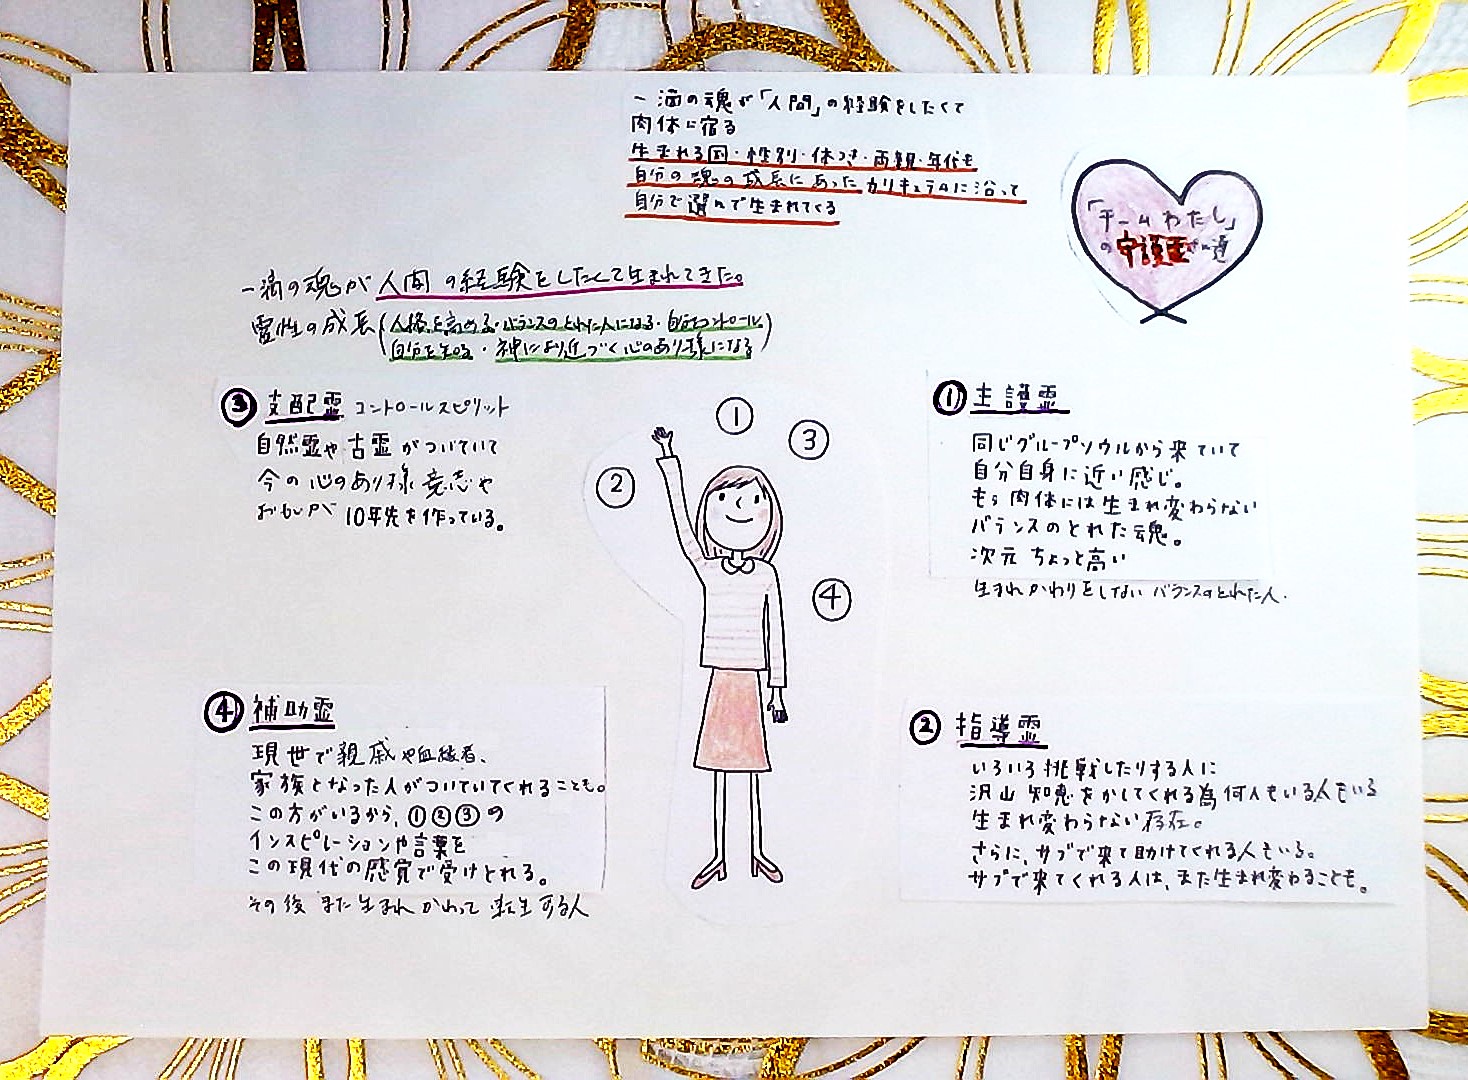 一滴の魂が「人間」の経験をしたくて
肉体に宿る
生まれる国・性別・体つき・両親・年代も
自分の魂の成長にあったカリキュラムに沿って
自分で選んで生まれてくる
「チームわたし」
の守護霊さん達
一滴の魂が人間の経験をしたくて生まれてきた。
霊性の成長(人格を高める・バランスのとれた人になる・自分をコントロール
自分を知る・神により近づく心のあり様になる)
③ 支配霊 コントロールスピリット
自然霊や古霊がついていて
今の心のあり様 意志や
おもいが 10年先を作っている。
①
③
②
④
① 主護霊
同じグループソウルから来ていて
自分自身に近い感じ。
もう肉体には生まれ変わらない
バランスのとれた魂。
次元ちょっと高い
生まれかわりをしないバランスのとれた人.
④ 補助霊
現世で親戚や血縁者、
家族となった人がついていてくれることも。
この方がいるから、①②③の
インスピレーションや言葉を
この現代の感覚で受けとれる。
その後また生まれかわって転生する人
② 指導霊
いろいろ挑戦したりする人に
沢山知恵をかしてくれる為何人もいる人もいる
生まれ変わらない存在。
さらに、サブで来て助けてくれる人もいる。
サブで来てくれる人は、また生まれ変わることも。